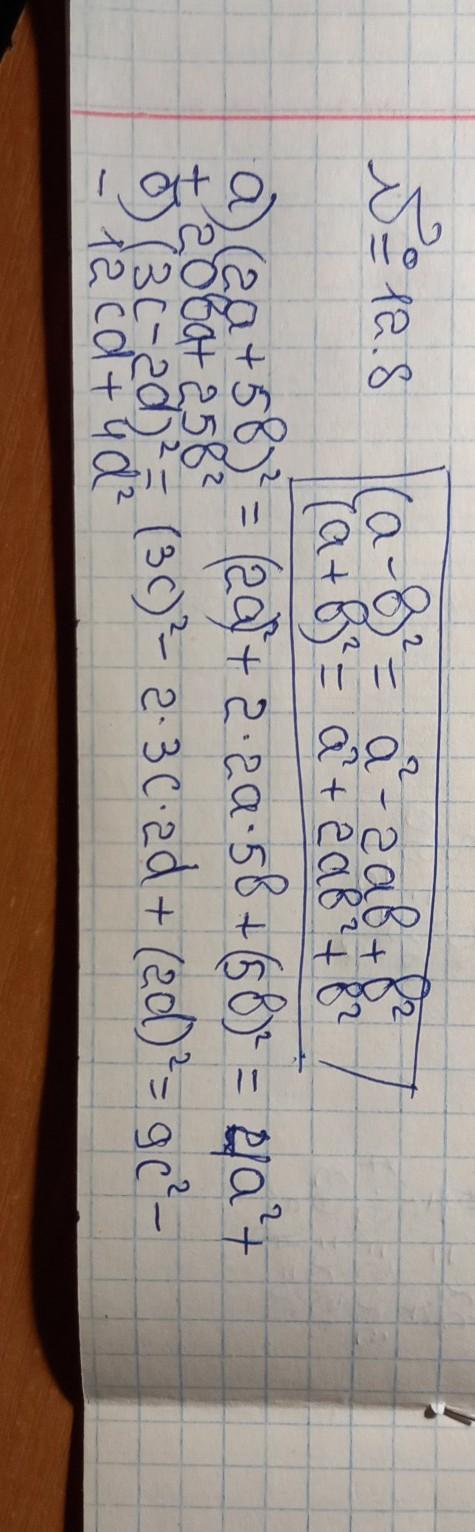 № 12.8
(a-b)² = a² - 2ab + b²
(a+b)² = a² + 2ab² + b²
а) (2a + 5b)² = (2a)² + 2·2a·5b + (5b)² = 4a² +
+ 20ba + 25b²
б) (3c - 2d)² = (3c)² - 2·3c·2d + (2d)² = 9c² -
- 12cd + 4d²